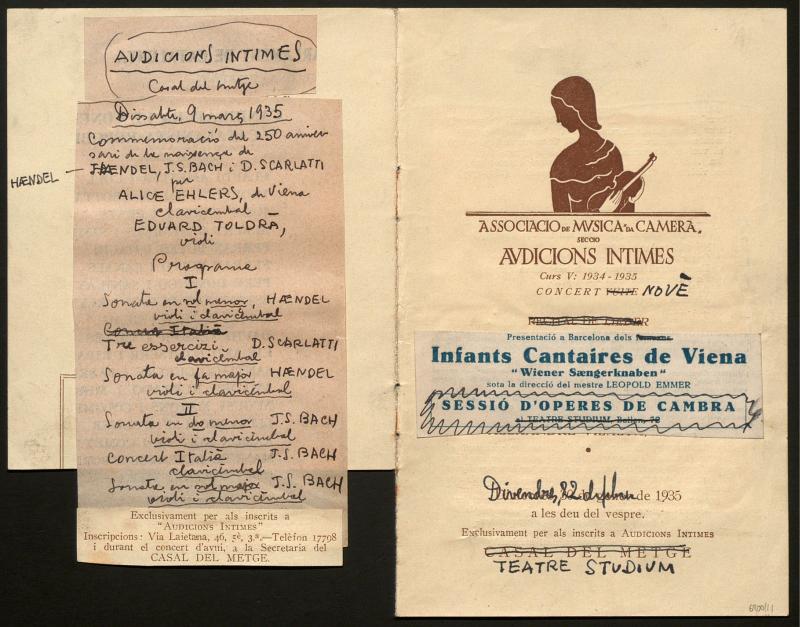 AUDICIONS INTIMES
Casal del Metge
Dissabte, 9 març 1935
Commemoració del 250 aniver-
sari de la naixença de
HÆNDEL, J.S. BACH i D. SCARLATTI
HÆNDEL
per
ALICE EHLERS, de Viena
clavicémbal
EDUARD TOLDRÀ,
violí
Programa
I
Sonata en sol menor, HÆNDEL
violí i clavicémbal
Concert Italià
Tre essercizi D. SCARLATTI
clavicémbal
Sonata en fa major HÆNDEL
violí i clavicémbal
II
Sonata en do menor J.S. BACH
violí i clavicémbal
Concert Italià J.S. BACH
clavicémbal
Sonata en sol major J.S. BACH
violí i clavicémbal
Exclusivament per als inscrits a
"AUDICIONS INTIMES"
Inscripcions: Via Laietana, 46, 5è, 3.ª.—Telèfon 17798
i durant el concert d'avui, a la Secretaria del
CASAL DEL METGE.
ASSOCIACIO DE MVSICA DA CAMERA,
SECCIO
AVDICIONS INTIMES
Curs V: 1934 - 1935
CONCERT VUITÈ NOVÈ
Presentació a Barcelona dels
Infants Cantaires de Viena
"Wiener Sængerknaben"
sota la direcció del mestre LEOPOLD EMMER
SESSIÓ D'OPERES DE CAMBRA
al TEATRE STUDIUM
Divendres, 22 de 1935
a les deu del vespre.
Exclusivament per als inscrits a AUDICIONS INTIMES
CASAL DEL METGE
TEATRE STUDIUM